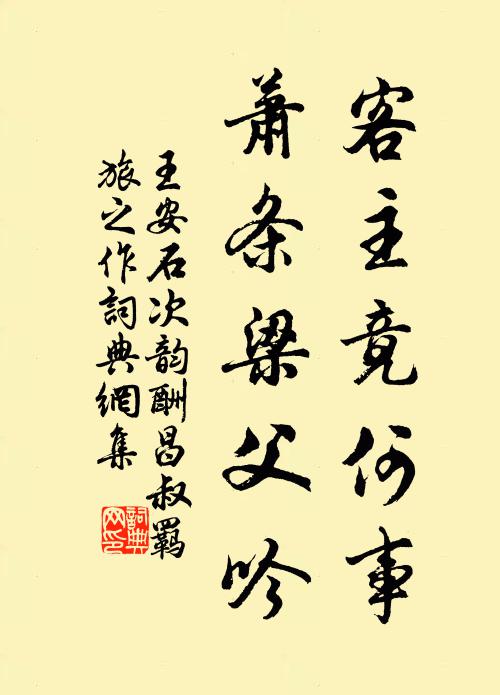 客主竟何事
蕭条梁父吟
王安石次韵酬昌叔羁
旅之作詞典網集
詞典
网印